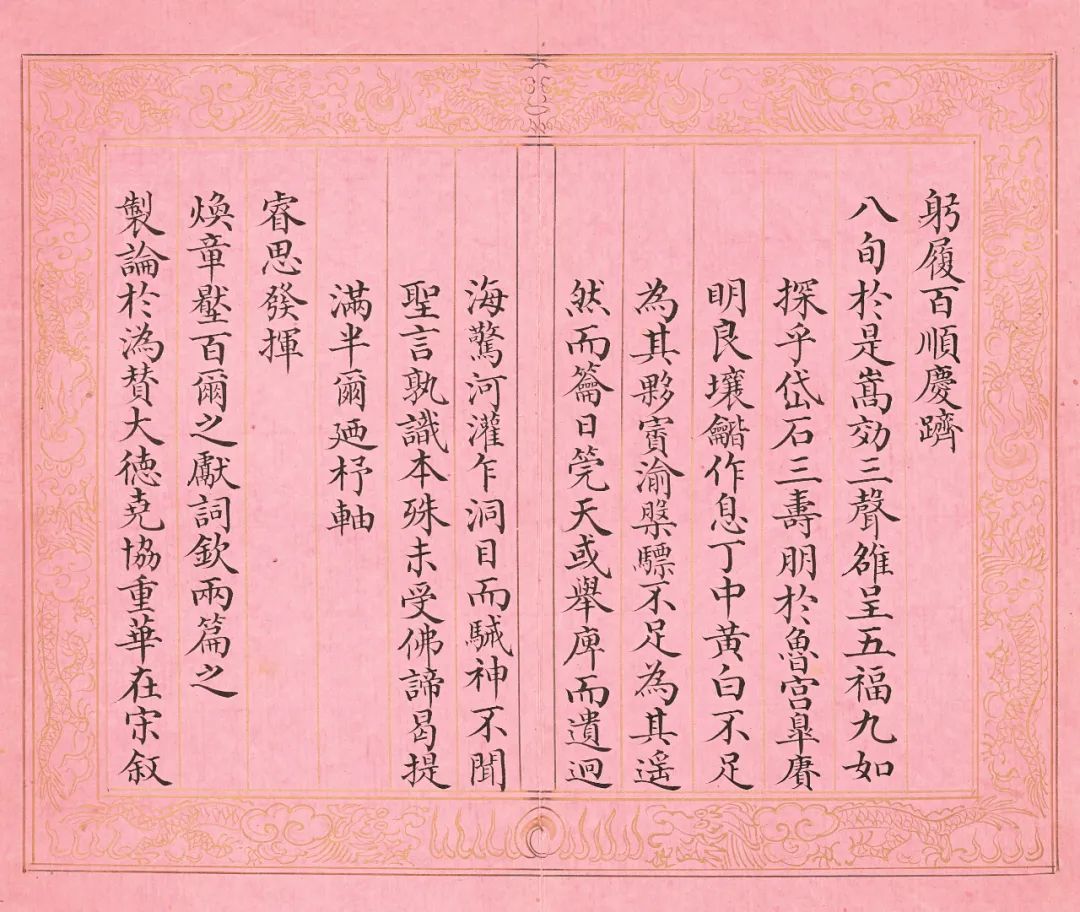 躬履百順慶躋
八旬於是嵩効三聲雒呈五福九如
探乎岱石三壽朋於魯宮臯賡
明良壤龤作息丁中黃白不足
為其夥賨渝槃驃不足為其遥
然而籥日筦天或舉庳而遺迥
海驚河灌乍洞目而駴神不聞
聖言孰識本殊未受佛諦曷提
滿半爾廼杼軸
睿思發揮
煥章壓百爾之獻詞欽兩篇之
製論於溈贊大德堯協重華在宋叙